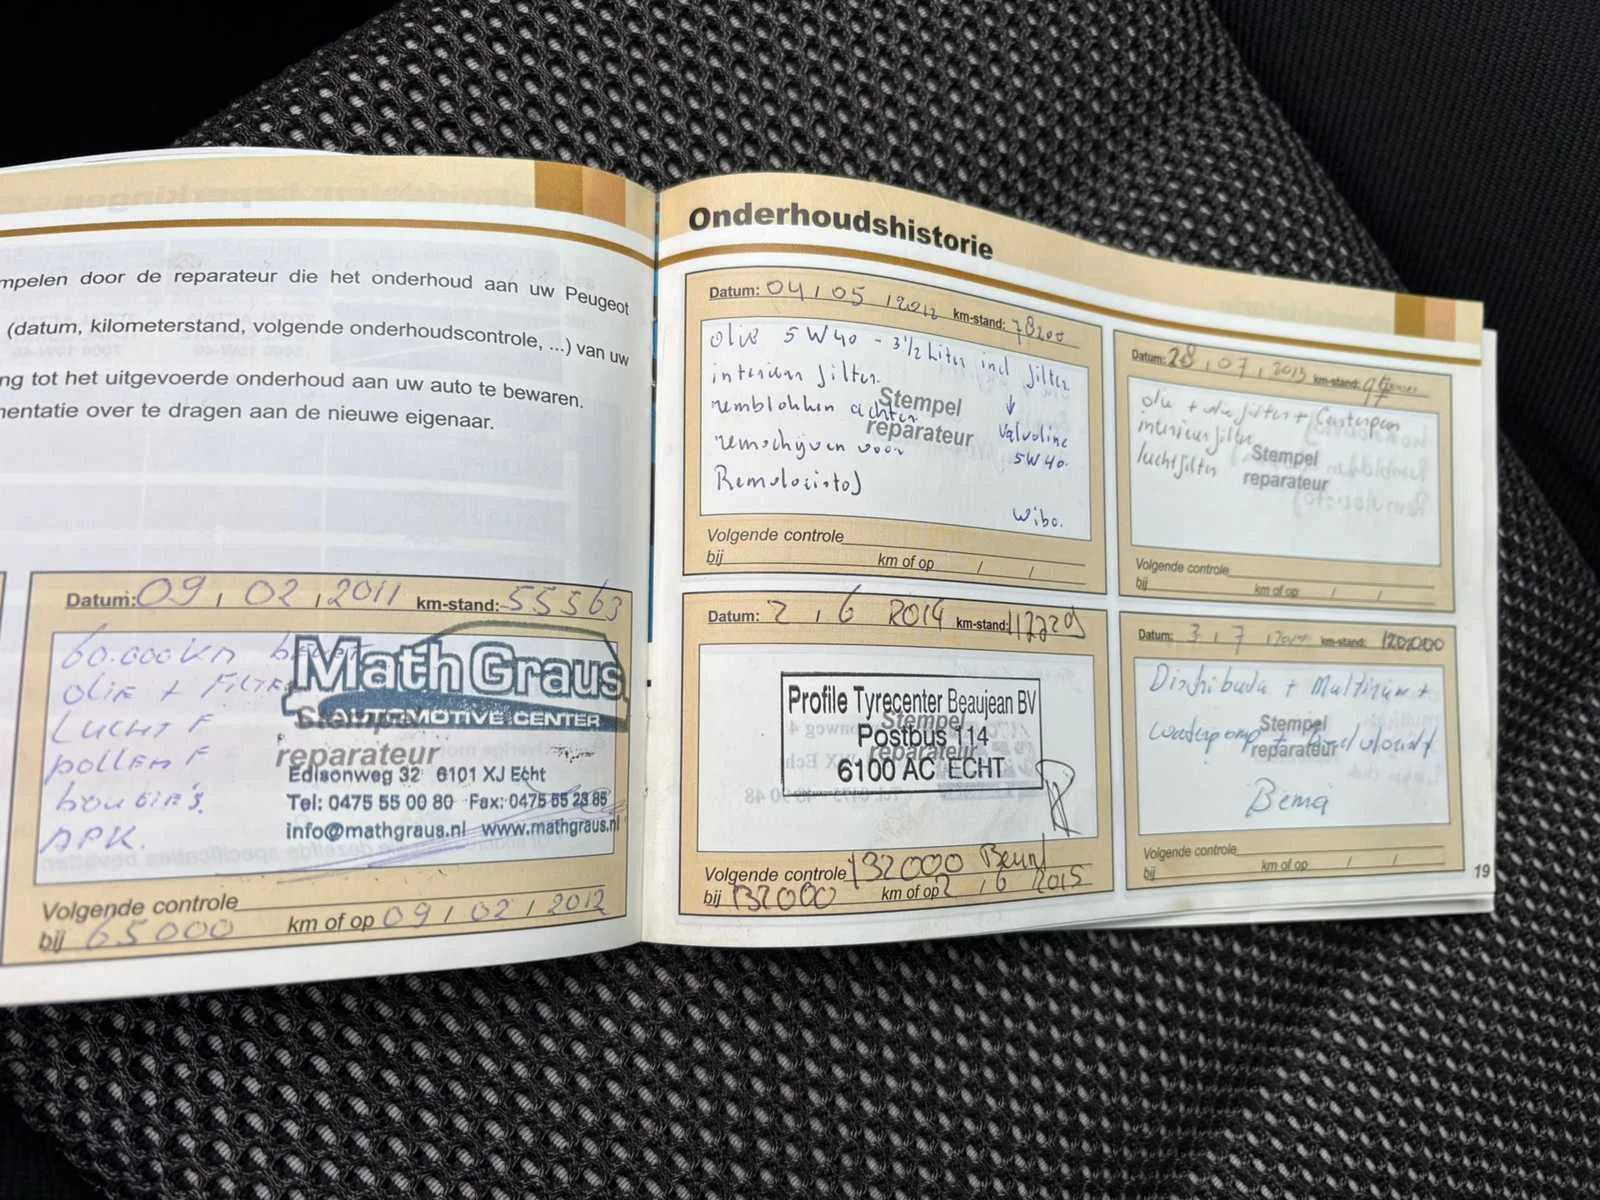 mpelen door de reparateur die het onderhoud aan uw Peugeot
(datum, kilometerstand, volgende onderhoudscontrole, ...) van uw
ng tot het uitgevoerde onderhoud aan uw auto te bewaren.
mentatie over te dragen aan de nieuwe eigenaar.
Datum: 09 / 02 / 2011 km-stand: 55563
60.000 km beurt
olie + Filter
Lucht F
pollen F
bougie's
APK.
Math Graus
AUTOMOTIVE CENTER
Stempel
reparateur
Edisonweg 32 6101 XJ Echt
Tel: 0475 55 00 80 Fax: 0475 55 23 85
info@mathgraus.nl www.mathgraus.nl
Volgende controle
bij 65000 km of op 09 / 02 / 2012
Onderhoudshistorie
Datum: 04 / 05 / 2012 km-stand: 78200
olie 5W40 - 3 1/2 Liter incl filter
interieur filter.
remblokken achter
remschijven voor
Remvloeistof
Valvoline
5W40.
Wibo.
Stempel
reparateur
Volgende controle
bij km of op / /
Datum: 28 / 07 / 2013 km-stand:
olie + olie filter + Carterpan
interieurfilter
luchtfilter
Stempel
reparateur
Volgende controle
bij km of op / /
Datum: 2 / 6 2014 km-stand:
Profile Tyrecenter Beaujean BV
Postbus 114
6100 AC ECHT
Stempel
reparateur
Volgende controle 132000 Beurt
bij 132000 km of op 2 / 6 2015
Datum: 3 / 7 / km-stand: 120000
Distributie + Multiriem +
waterpomp +
Bema
Stempel
reparateur
Volgende controle
bij km of op / /
19